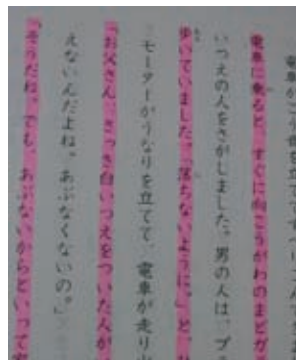 電車に乗ると、すぐに向こうがわのまどが
いつえの人をさがしました。男の人は、プ
歩いていました。「落ちないように。」と、
モーターがうなりを立てて、電車が走り
「お父さん、さっき白いつえをついた人が
えないんだよね。あぶなくないの。」
「そうだね。でも、あぶないからといって